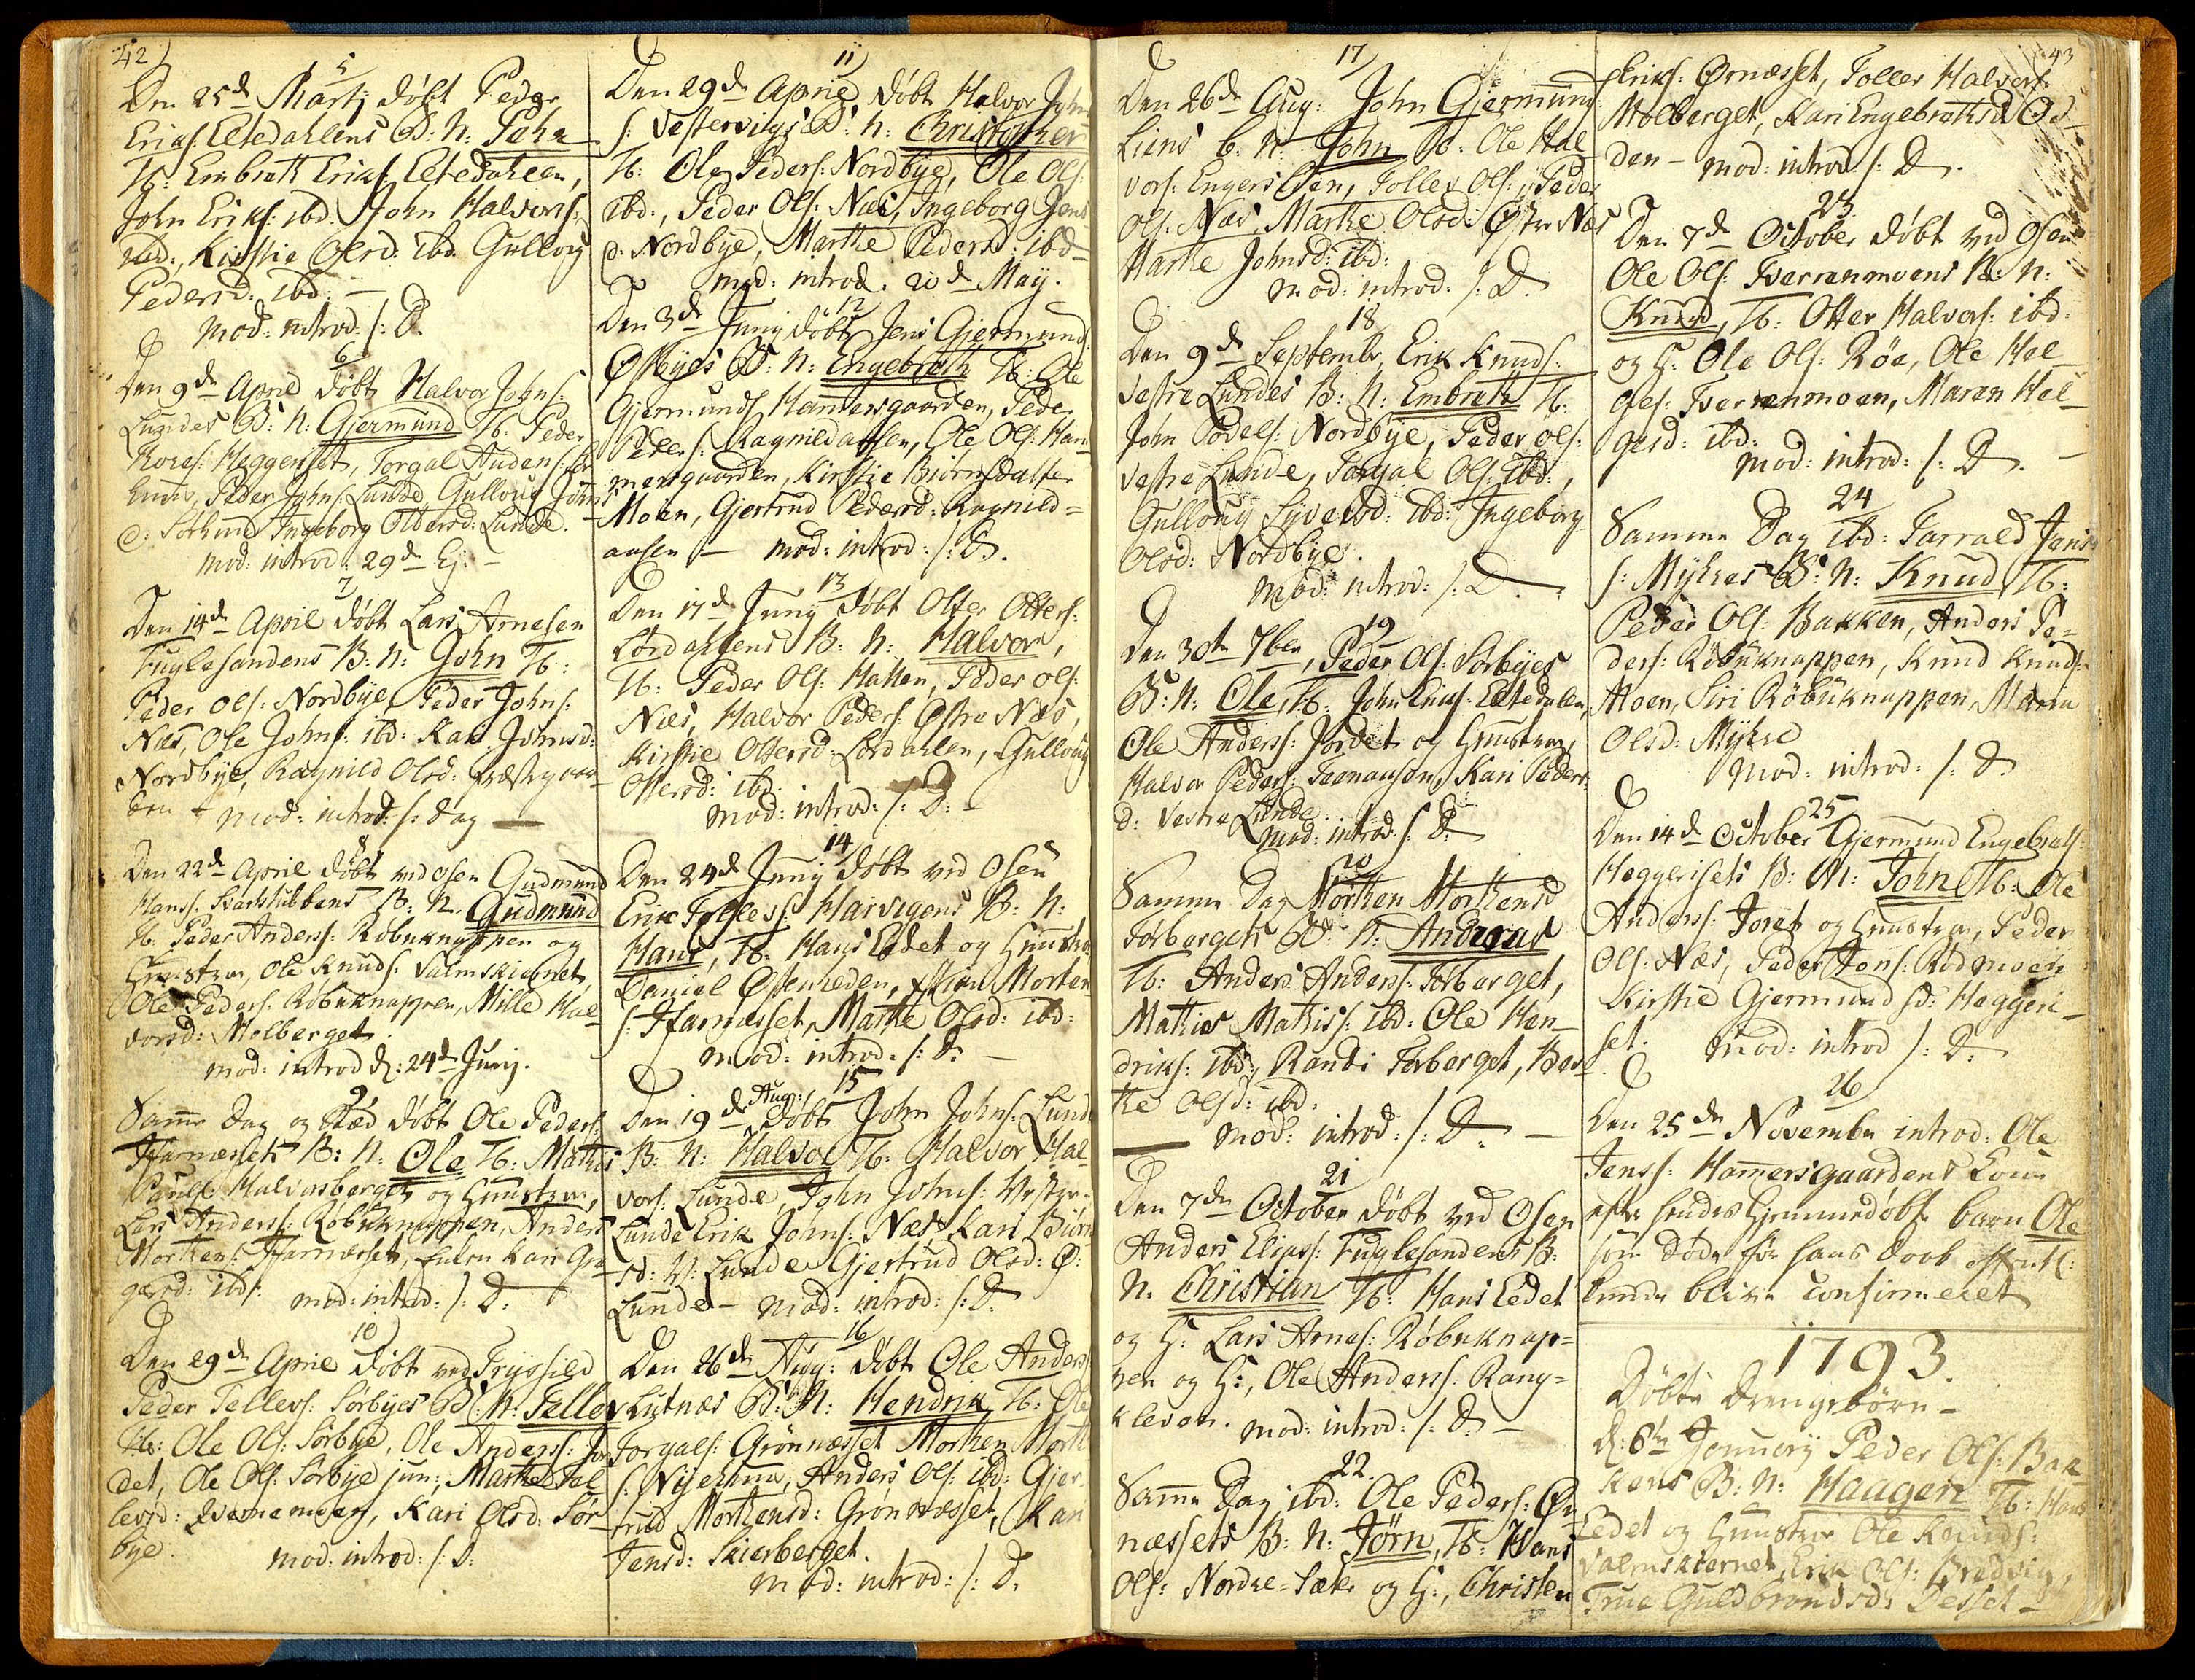 42
5
Den 25de Martij døbt Peder
Eriks: Eltedahlens B: N: John
Tb: Embrett Eriks: Eltedahlen,
John Eriks: ibd. John Halvors:
ibd:, Kirstie Olsd. ibd. Gullov
Pedersd: ibd: —
Mod: introd: s: D.
6
Den 9de April døbt Halvor Johns:
Lundes B: N: Gjermund Tb: Peder
Heggeriset, Torgal Audens:
Peder Johns: Lunde, Gulloug Johns
d: Ingeborg Ottersd: Lunde. —
Mod: introd: 29de Ej: —
7
Den 14de April døbt Lars Arnesen
Fuglesandens B: N: John Tb:
Peder Ols: Nordbye, Peder Johns:
Næs, Ole Johns: ibd: Kari Johnsd:
Nordbye, Ragnild Olsd: Præstgaar
den — mod: introd: s: dag —
8
Den 22de April døbt ved Osen Gudmund
Hanss: Skarkstubbens B: N. Gudmund
Tb: Peder Anderss: Røbuknappen og
Hustrue, Ole Knuds: Valmskiernet,
Ole Peders: Røbuknappen, Mille Hal-
vorsd: Molberget.
mod: introd d: 24de Junij.
9
Samme Dag og Stæd døbt Ole Peders:
B: N: Ole Tb: Mathis
Pauls: Halvorsberget og Hustrue,
Lars Anderss: Røbuknappen, Anders
Mortens: Kari Gre
gersd: ibd: mod: introd: s: D.
10
Den 29de April døbt ved Trysild
Peder Tellevs: Sørbyes B: N: Tellev
Tb: Ole Ols: Sørbye, Ole Anderss: Jor
det, Ole Ols: Sørbye jun:, Marthe Tel
levsd: Qvernemoen, Kari Olsd: Sør-
bye. mod: introd: s: D:
11
Den 29de April døbt Halvor John
s: Vestervigs B: N: Christopher
Tb: Ole Peders: Nordbye, Ole Ols:
ibd., Peder Ols: Næs, Ingeborg Jens
d: Nordbye, Marthe Pedersd: ibd —
mod: introd. 20de Maij.
12
Den 3de Junij døbt Jens Gjermunds
Østbyes B: N: Engebreth Tb: Ole
Gjermunds Hammersgaarden, Peder
Peders: Ragnildaasen, Ole Ols: Ham
mersgaarden, Kirstie Biørnsdatter
Moen, Gjertrud Pedersd: Ragnild=
aasen — mod: introd: s: D.
13
Den 17de Junij døbt Otter Otters:
Lørdahlens B: N: Halvor,
Tb: Peder Ols: Hatten, Peder Ols:
Næs, Halvor Peders: Østre Næs,
Kirstie Ottersd: Lørdahlen, Gulloug
Ottersd: ibd.
mod: introd: s: D: —
14
Den 24de Junij døbt ved Osen
Erik Tollefs: Harvigens B: N:
Hans, Tb: Hans Eedet og Hustrue
Daniel Østenheden, Morten
s: Marthe Olsd: ibd:
mod: introd: s: D: —
15
Den 19de Aug: døbt John Johns: Lunde
B: N: Halvor Tb: Halvor Hal
vors: Lunde, John Johns: Vestre
Lunde Erik Johns: Næs, Kari Biørn
sd: V: Lunde Gjertrud Olsd: Ø:
Lunde — mod: introd: s: D.
16
Den 26de Aug: døbt Ole Anders:
Lutnæs B: N: Hendrik Tb: Ole
Torgals: Grønnæsset Morten Mort
s: Nyehuus, Anders Ols: ibd: Gjer
trud Mortensd: Grønnæsset, Kari
Jensd: Skierberget.
mod: introd: s: D.
17
Den 26de Aug: John Gjermunds:
Liens B. N: John Tb: Ole Hal
vors: Engerslien, Tollev Ols:, Peder
Ols: Næs, Marthe Olsd: Østre Næs
Marthe Johnsd: ibd:
mod: introd: s: D.
18
Den 9de Septembr, Erik Knuds:
vestre Lundes B: N: Embreth Tb:
John Podels: Nordbye, Peder Ols:
vestre Lunde, Torgal Ols: ibd:,
Gulloug Syversd: ibd: Ingeborg
Olsd: Nordbye.
Mod: introd: s: D. —
19
Den 30te 7ber, Peder Ols: Sørbyes
B: N: Ole, Tb: John Eriks: Eltedalen,
Ole Anderss: Jordet og Hustrue,
Halvor Peders: Taanaasen, Kari Peders
d: vestre Lunde
Mod: introd: s: D:
20
Samme Dag Morten Mortensd
Førbergets B: N: Andreas
Tb: Anders Anderss: Førberget,
Mathis Mathiss: ibd: Ole Hen-
driks: ibd:, Randi Førberget, Ber-
the Olsd: ibd.
mod: introd: s: D. —
21
Den 7de October døbt ved Osen
Anders Eliass: Fuglesandens B:
N. Christian Tb: Hans Eedet
og H: Lars Arnes: Røbuknap=
pen og H:, Ole Anderss: Rang=
kleven. mod: introd: s: D. —
22.
Samme Dag ibd: Ole Peders: Ør
næssets B: N: Jörn, Tb: Hans
Ols: Nordre-Sæter og H:, Christen
43
Eriks: Ørnæsset, Tollev Halvors:
Molberget, Kari Engebrethsd Od
den — mod: introd s: D.
23
Den 7de October døbt ved Osen
Ole Ols: Tverrenmoens B: N:
Knud, Tb: Otter Halvors: ibd:
og H: Ole Ols: Røe, Ole Hel
ges: Tverrenmoen, Maren Hel-
gesd: ibd:
mod: introd: s: D. —
24
Samme Dag ibd: Tarrald Jens
s: Mykres B: N: Knud Tb:
Peder Ols: Bakken, Anders Pe=
ders: Røbuknappen, Knud Knuds:
Moen, Siri Røbuknappen, Maria
Olsd: Mykre
Mod: introd: s: D.
25
Den 14de October Gjermund Engebrets:
Heggerisets B: N: John Tb: Ole
Anderss: Joret og Hustrue, Peder
Ols: Næs, Peder Jons: Rødmoen
Kirstie Gjermundsd: Heggeri-
set. mod: introd s: D.
26
Den 25de Novembr introd: Ole
Jenss: Hammersgaardens Kone
efter hendes Hjemmedøbte barn Ole
som døde før hans Daab offentl:
kunde blive confirmeret
1793.
Døbte Drengebörn —
d: 6te Januarij Peder Ols: Bak
kens B: N: Haagen Tb: Hans
Eedet og Hustrue Ole Knuds:
Valmskiernet, Erik Ols: Bredvig,
True Guldbrandsd: Desset —